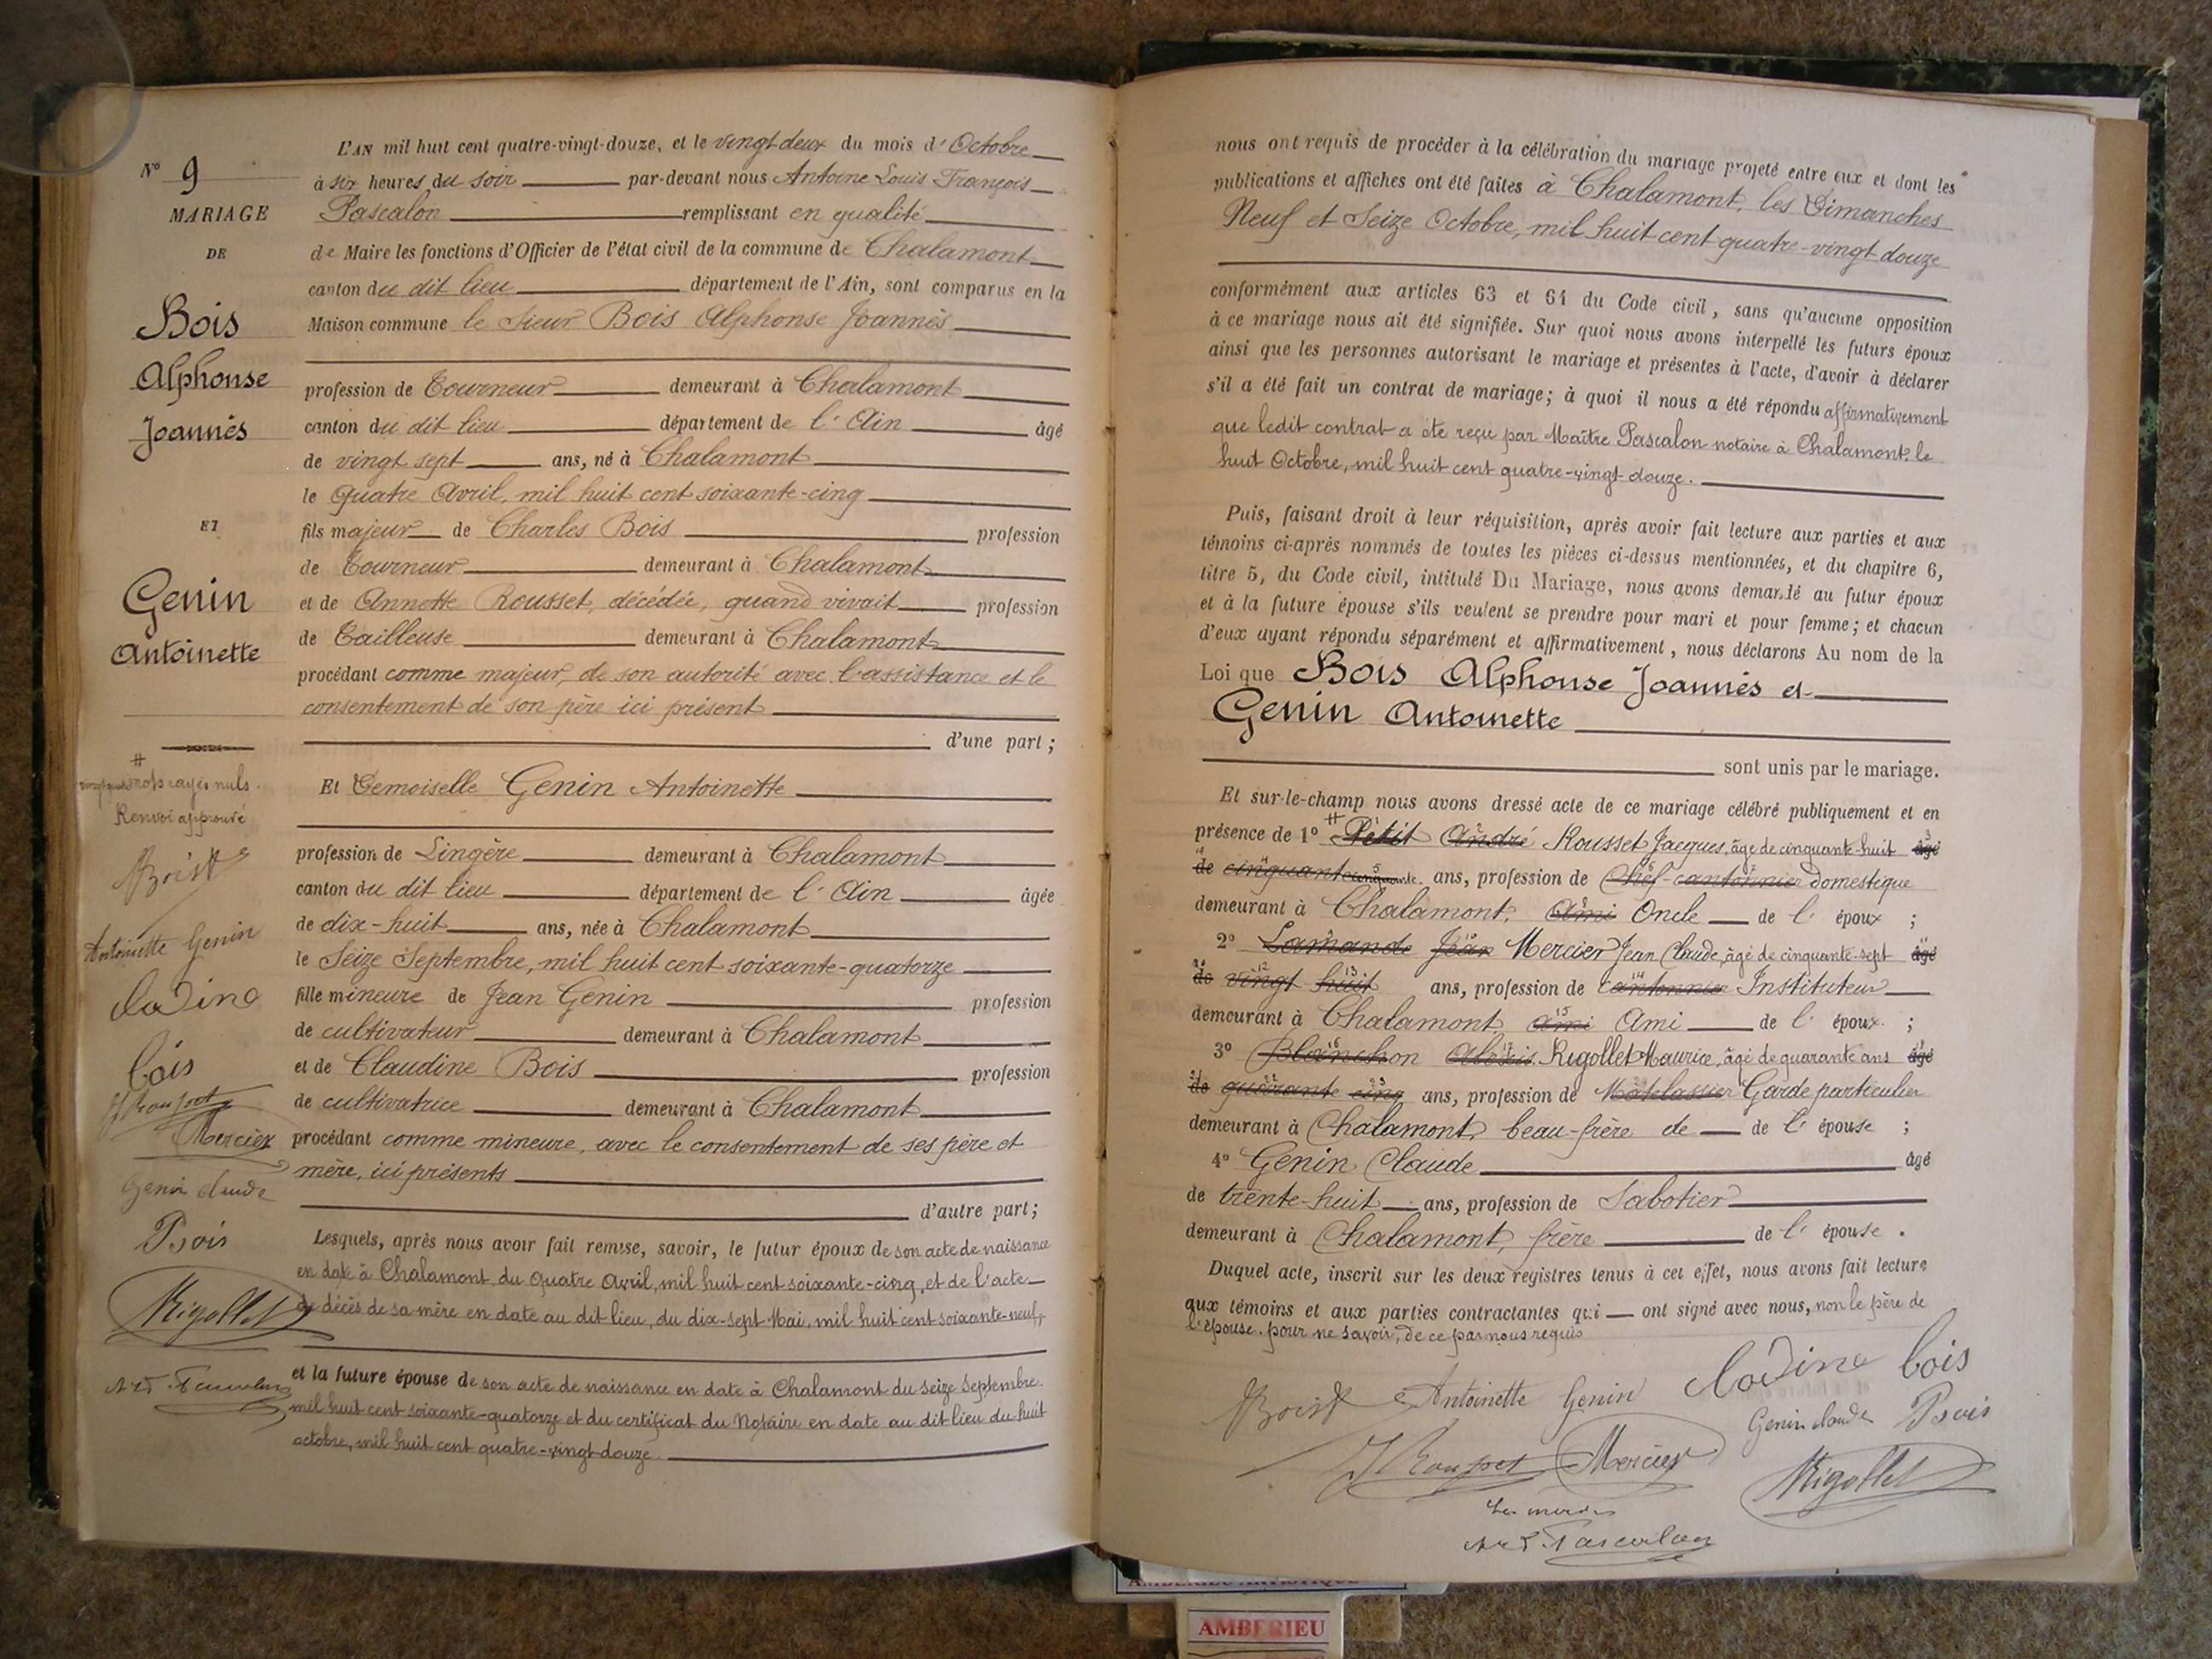 N° 9
MARIAGE
DE
Bois
Alphonse
Joannès
ET
Genin
Antoinette
mots rayés nuls.
Renvoi approuvé
Antoinette Genin
bois
Mercier
Genin claude
Bois
Rigollet
L'AN mil huit cent quatre-vingt-douze, et le vingt-deux du mois d'Octobre
à six heures du soir par-devant nous Antoine Louis François
Pascalon remplissant en qualité
de Maire les fonctions d'Officier de l'état civil de la commune de Chalamont
canton du dit lieu département de l'Ain, sont comparus en la
Maison commune le Sieur Bois Alphonse Joannès
profession de Tourneur demeurant à Chalamont
canton du dit lieu département de l'Ain âgé
de vingt sept ans, né à Chalamont
le Quatre Avril, mil huit cent soixante-cinq
fils majeur de Charles Bois profession
de Tourneur demeurant à Chalamont
et de Annette Rousset, décédée, quand vivait profession
de Tailleuse demeurant à Chalamont
procédant comme majeur, de son autorité avec l'assistance et le
consentement de son père ici présent
d'une part ;
Et Demoiselle Genin Antoinette
profession de Lingère demeurant à Chalamont
canton du dit lieu département de l'Ain âgée
de dix-huit ans, née à Chalamont
le Seize Septembre, mil huit cent soixante-quatorze
fille mineure de Jean Genin profession
de cultivateur demeurant à Chalamont
et de Claudine Bois profession
de cultivatrice demeurant à Chalamont
procédant comme mineure, avec le consentement de ses père et
mère, ici présents
d'autre part ;
Lesquels, après nous avoir fait remise, savoir, le futur époux de son acte de naissance
en date à Chalamont du Quatre Avril, mil huit cent soixante-cinq, et de l'acte
de décès de sa mère en date au dit lieu, du dix-sept Mai, mil huit cent soixante-neuf,
et la future épouse de son acte de naissance en date à Chalamont du seize septembre
mil huit cent soixante-quatorze et du certificat du Notaire en date au dit lieu du huit
octobre, mil huit cent quatre-vingt-douze.
nous ont requis de procéder à la célébration du mariage projeté entre eux et dont les
publications et affiches ont été faites à Chalamont, les Dimanches
Neuf et Seize Octobre, mil huit cent quatre-vingt douze
conformément aux articles 63 et 64 du Code civil, sans qu'aucune opposition
à ce mariage nous ait été signifiée. Sur quoi nous avons interpellé les futurs époux
ainsi que les personnes autorisant le mariage et présentes à l'acte, d'avoir à déclarer
s'il a été fait un contrat de mariage ; à quoi il nous a été répondu affirmativement
que ledit contrat a été reçu par Maître Pascalon notaire à Chalamont, le
huit Octobre, mil huit cent quatre-vingt-douze.
Puis, faisant droit à leur réquisition, après avoir fait lecture aux parties et aux
témoins ci-après nommés de toutes les pièces ci-dessus mentionnées, et du chapitre 6,
titre 5, du Code civil, intitulé Du Mariage, nous avons demandé au futur époux
et à la future épouse s'ils veulent se prendre pour mari et pour femme ; et chacun
d'eux ayant répondu séparément et affirmativement, nous déclarons Au nom de la
Loi que Bois Alphonse Joannès et
Genin Antoinette
sont unis par le mariage.
Et sur-le-champ nous avons dressé acte de ce mariage célébré publiquement et en
présence de 1° Petit André Rousset Jacques, âgé de cinquante-huit âgé
de cinquante cinquante ans, profession de Chef-cantonnier domestique
demeurant à Chalamont, ami Oncle de l'époux ;
2° Lamande Jean Mercier Jean Claude, âgé de cinquante-sept âgé
de vingt huit ans, profession de Cantonnier Instituteur
demeurant à Chalamont, ami Ami de l'époux ;
3° Blanchon Alexis Rigollet Maurice, âgé de quarante ans âgé
de quarante cinq ans, profession de Matelassier Garde particulier
demeurant à Chalamont, beau-frère de de l'épouse ;
4° Genin Claude âgé
de trente-huit ans, profession de Sabotier
demeurant à Chalamont, frère de l'épouse.
Duquel acte, inscrit sur les deux registres tenus à cet effet, nous avons fait lecture
aux témoins et aux parties contractantes qui ont signé avec nous, non le père de
l'épouse, pour ne savoir, de ce par nous requis
Antoinette Genin bois
Genin claude Bois
J Rousset Mercier Rigollet
AMBERIEU